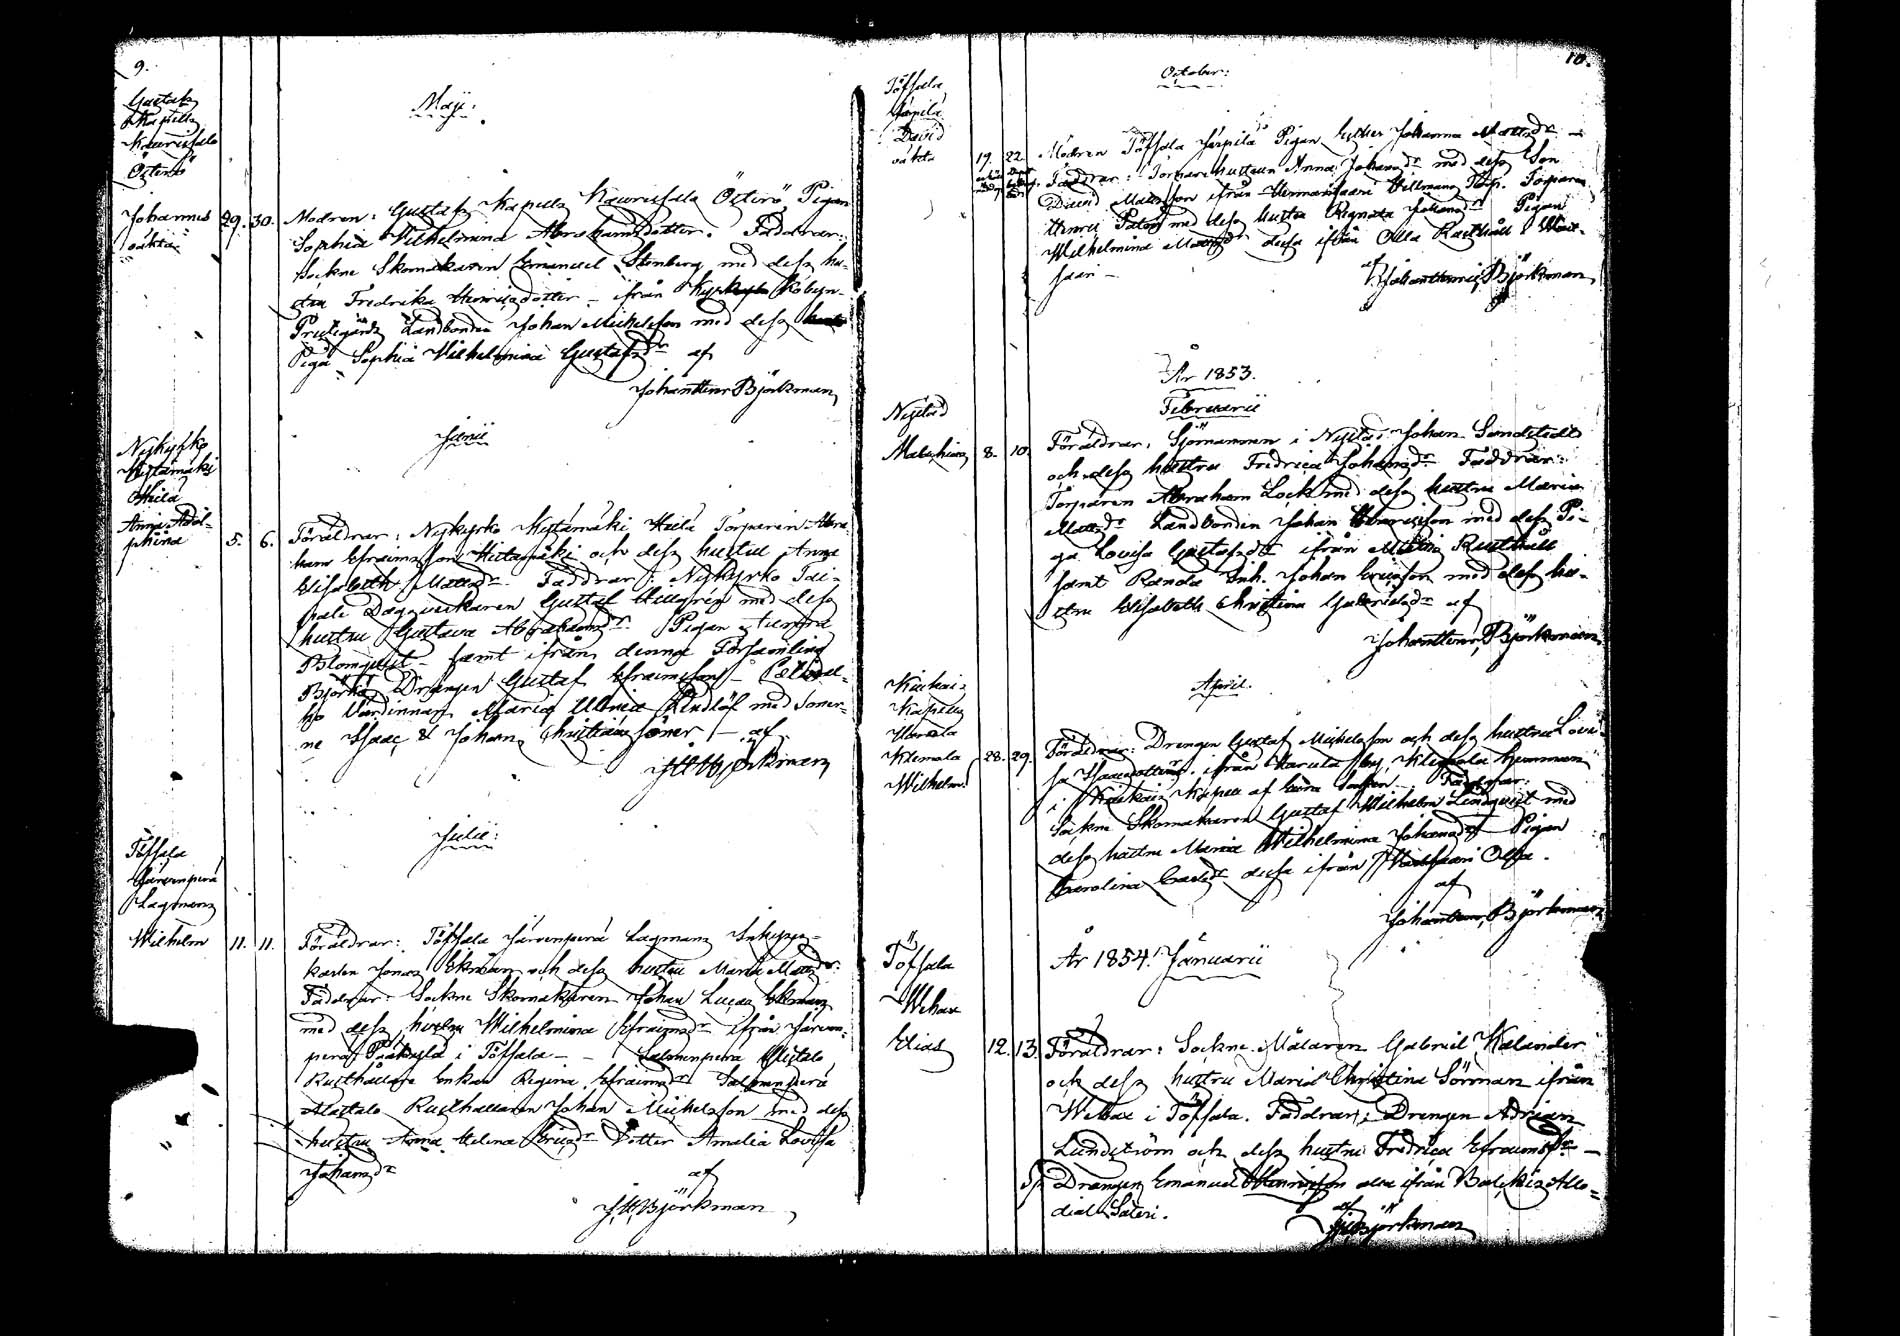 9.
Maji.
Gustafs
Kapells
Kaurissalo
Österö
Johannes
oäkta
29. 30. Modren: Gustafs Kapells Kaurissalo Österö Pigan
Sophia Wilhelmina Abrahamsdotter. Faddrar:
Sockne Skomakaren Emanuel Stenberg med dess hu-
stru Fredrika Henricsdotter - ifrån
Prestgårds Landbonden Johan Michelsson med dess
Piga Sophia Wilhelmina Gustafsdr af
Johan Henr Björkman
Junii
Nykyrko
Hietamäki
Heilä
Anna Adol-
phina
5. 6. Föräldrar: Nykyrko Hietamäki Heilä Torparen Abra
ham Efraimsson Hietamäki och dess hustru Anna
Elisabeth Mattsdr. Faddrar: Nykyrko Tai-
pale Dagsverkaren Gustaf Hellgrén med dess
hustru Gustava Abrahamsdr. Pigan
Blomqvist - samt ifrån denna Församling
Björkö Drengen Gustaf Efraimsson -
Värdinnan Maria Ulrica Lindlöf med Söner-
ne Isaac & Johan Christianssöner - af
J H Björkman
Julii:
Töfsala
Järvenperä
Lagmans
Wilhelm
11. 11. Föräldrar: Töfsala Järvenperä Lagmans Inhyses-
karlen Jonas Ekman och dess hustru Maria Mattsdr.
Faddrar: Sockne Skomakaren Johan Lucas Ekman
med dess hustru Wilhelmina Efraimsdr ifrån Järven-
perä i Töfsala - - Salmenperä Alastalo
Rusthållare Enkan Regina Efraimsdr Salmenperä
Alastalo Rusthållaren Johan Michelsson med dess
hustru Anna Helena Ericsdr Dotter Amalia Lovisa
Johansdr af
J. H. Björkman
10.
October:
Töfsala
Järpilä
David
oäkta
19. 22. Modren Töfsala Järpilä Pigan Esther Johanna Mattsdr -
Faddrar: Torpare hustrun Anna Johansdr med dess Son
David Mattsson ifrån Hellmans Torp. Torparen
Henric med dess hustru Regina Johansdr Pigan
Wilhelmina Mattsdr dessa ifrån Olla Rusthåll i Wart-
saari - af
Johan Henric Björkman
År 1853.
Februarii
Nystad
Mathias
8. 10. Föräldrar: Sjömannen i Nystad Johan Sandstedt
och dess hustru Fredrica Johansdr Faddrar:
Torparen Abraham Lock med dess hustru Maria
Mattsdr Landbonden Johan Henricsson med dess Pi-
ga Lovisa Gustafsdr ifrån Rusthåll
samt Randa Inh. Johan Ericsson med dess hu-
stru Elisabeth Christina Gabrielsdr af
Johan Henr. Björkman
April.
Kuckais
Kapells
Harula
Klemola
Wilhelm
28. 29. Föräldrar: Drengen Gustaf Michelsson och dess hustru Lovi-
sa Isaacsdotter. ifrån Harula by, Klemola hemman
i Kuckais Kapell af Socken. Faddrar:
Sockne Skomakaren Gustaf Wilhelm Lindqvist med
dess hustru Maria Wilhelmina Johansdr Pigan
Carolina Carlsdr dessa ifrån Wartsaari Olla.
af
Johan Henr. Björkman
År 1854. Januarii
Töfsala
Wehax
Elias
12. 13. Föräldrar: Sockne Målaren Gabriel Kalander
och dess hustru Maria Christina Sörman ifrån
Wehax i Töfsala. Faddrar: Drengen Adrian
Lundström och dess hustru Fredrica Efraimsdr -
Drengen Emanuel Henricsson alla ifrån Balckis Allo-
dial Säteri. af
J H Björkman